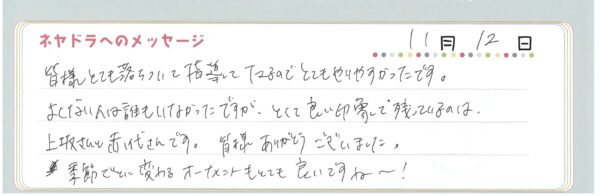 ネヤドラへのメッセージ 11月12日
皆様とても落ちついて指導して下さるのでとてもやりやすかったです。
よくない人は誰もいなかったですが、とくて良い印象で残っているのは、
上坂さんと田代さんです。皆様ありがとうございました。
季節ごとに変わるオーナメントもとても良いですね〜!